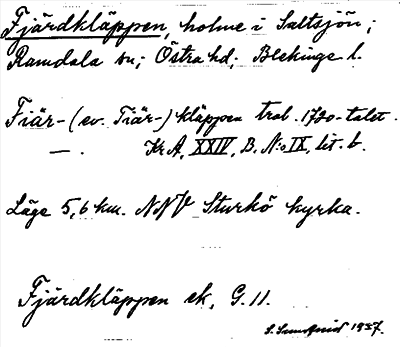 Fjärdkläppen, holme i Saltsjön;
Ramdala sn; Östra hd; Blekinge l.
Fiär- (ev. Tiär-) kläppen trol. 1720-talet.
— . Kr A, XXIV, B. N:o IX, lit. b.
Läge 5,6 km. NNV Sturkö kyrka.
Fjärdkläppen ek, G. 11.
S. Sundquist 1937.